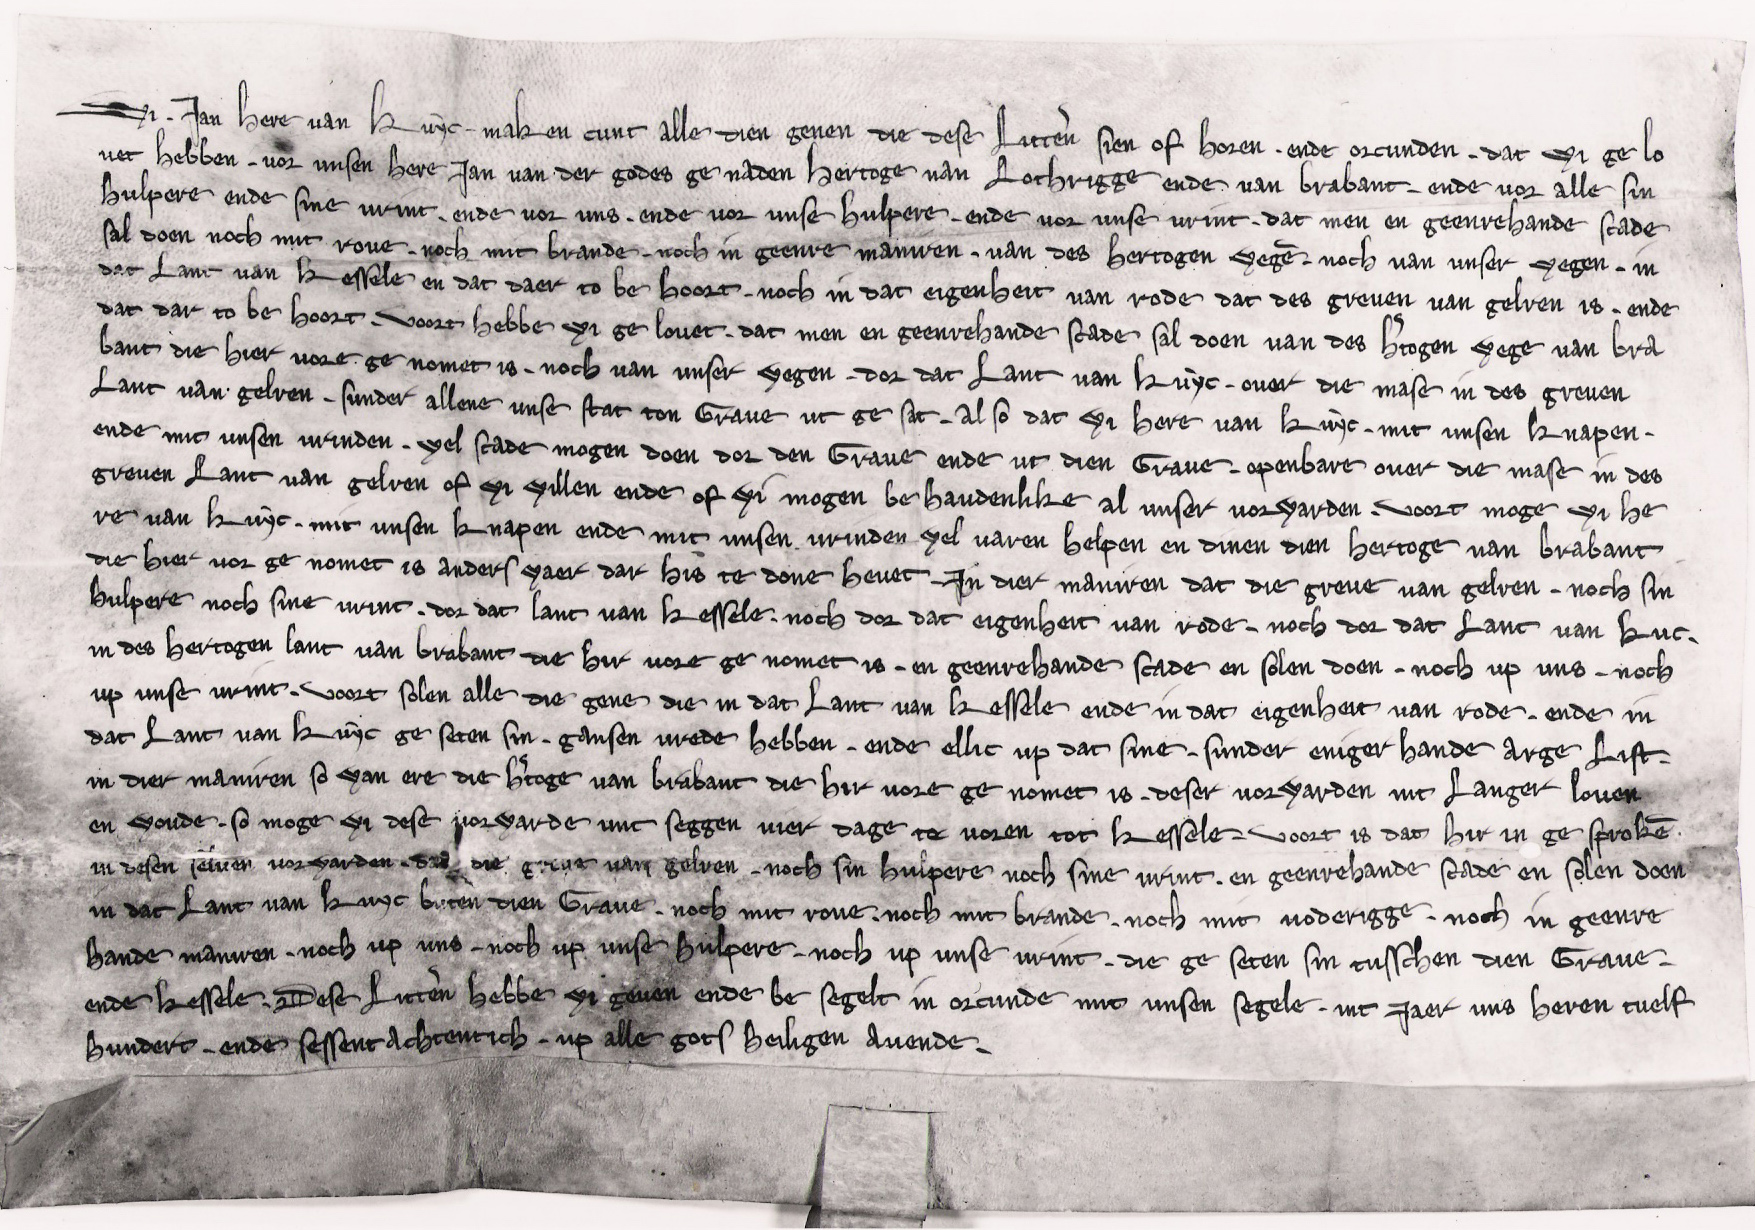 Wi . Jan here van Kuÿc . maken cunt alle dien genen die dese Littēn sien of horen . ende orcunden . dat wi ge lo
uet hebben . vor unsen here Jan van der godes ge naden hertoge van Lothrigge ende van brabant . ende vor alle sin
hulpere ende sine vrint . ende vor uns . ende vor unse hulpere . ende vor unse vrint . dat men en geenrehande scade
sal doen noch mit roue . noch mit brande . noch in geenre maniren . van des hertogen wegē . noch van unser wegen . in
dat Lant van Kessele en dat daer to be hoort . noch in dat eigenheit van rode dat des greuen van gelren is . ende
dat dar to be hoort . Voort hebbe wi ge louet . dat men en geenrehande scade sal doen van des h'togen wege van bra
bant die hier vore ge nomet is . noch van unser wegen . dor dat Lant van Kuÿc . ouer die mase in des greuen
Lant van gelren . sunder allene unse stat ton Graue ut ge sat . al so dat wi here van Kuÿc . mit unsen Knapen .
ende mit unsen vrinden . wel scade mogen doen dor den Graue ende ut dien Graue . openbare ouer die mase in des
greuen Lant van gelren of wi willen ende of wi mogen be haudenlike al unser vorwarden . Voort moge wi he
re van Kuÿc . mit unsen Knapen ende mit unsen vrinden wel varen helpen en dinen dien hertoge van brabant
die hier vor ge nomet is anders waer dar his te done heuet . In dier maniren dat die greue van gelren . noch sin
hulpere noch sine vrint . dor dat lant van Kessele . noch dor dat eigenheit van rode . noch dor dat Lant van Kuc .
in des hertogen lant van brabant die hir vore ge nomet is . en geenrehande scade en solen doen . noch up uns . noch
up unse vrint . Voort solen alle die gene die in dat Lant van Kessele ende in dat eigenheit van rode . ende in
dat Lant van Kuÿc ge seten sin . gansen vrede hebben . ende ellic up dat sine . sunder eniger hande arge List .
in dier maniren so wan ere die h'toge van brabant die hir vore ge nomet is . deser vorwarden nit Langer louen
en woude . so moge wi dese vorwarde unt seggen vier dage te voren tot Kessele . Voort is dat hir in ge sprokē .
in desen seluen vorwarden . dat die greue van gelren . noch sin hulpere noch sine vrint . en geenrehande scade en solen doen
in dat Lant van Kuyc buten dien Graue . noch mit roue . noch mit brande . noch mit uoderigge . noch in geenre
hande maniren . noch up uns . noch up unse hulpere . noch up unse vrint . die ge seten sin tusschen dien Graue .
ende Kessele . Dese Littēn hebbe wi geuen ende be segelt in orcunde mit unsen segele . int Jaer uns heren tuelf
hundert . ende sessentachtentich . up alle gots heiligen auende .